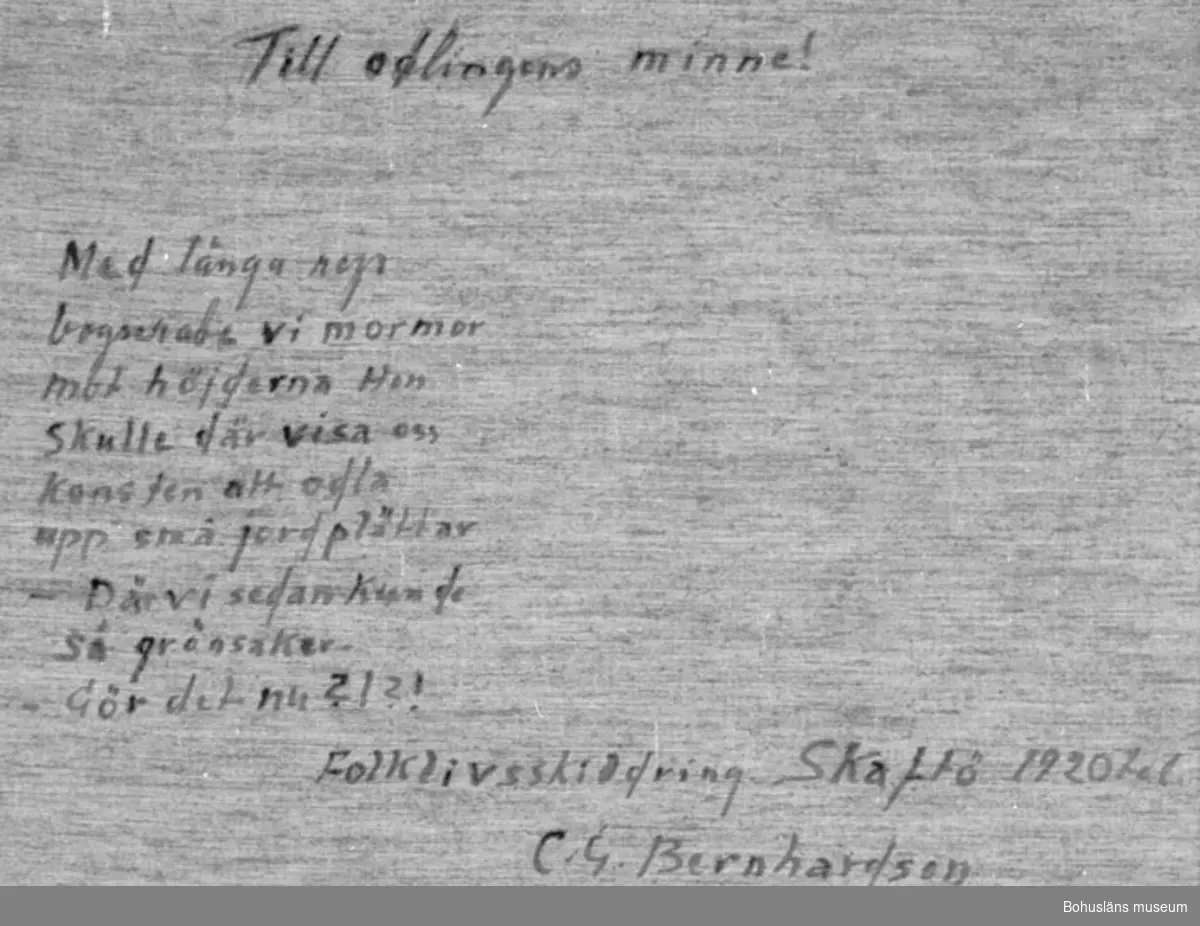 Till odlingens minne!
Med långa rep
bogserade vi mormor
mot höjderna Hon
skulle där visa oss
konsten att odla
upp små jordplättar
- Där vi sedan kunde
så grönsaker -
- Gör det nu?!?!
Folklivsskildring Skaftö 1920tal.
C.G. Bernhardson
Bohusläns museum